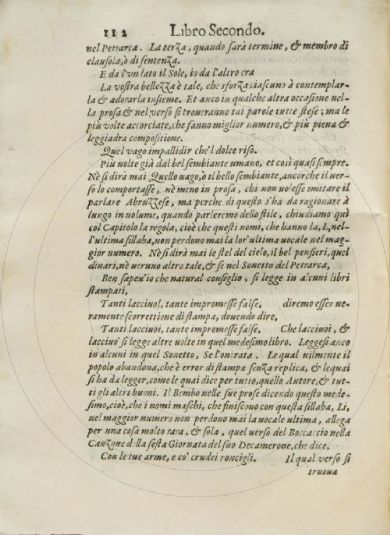 112 Libro Secondo.
nel Petrarca. La terza, quando sarà termine, & membro di
clausola, ò di sentenza.
E da l'un lato il Sole, io da l'altro era
La vostra bellezza è tale, che sforza ciascuno à contemplar-
la & adorarla insieme. Et anco in qualche altra occasione nel-
la prosa & nel verso si troveranno tai parole tutte stese; ma le
più volte accorciate, che fanno miglior numero, & più piena &
leggiadra compositione.
Quel vago impallidir che'l dolce riso.
Più volte già dal bel sembiante umano, et così quasi sempre.
Nè si dirà mai Quello vago, ò il bello sembiante, ancorche il ver-
so lo comportasse, nè meno in prosa, chi non vo'esse imitare il
parlare Abruzzese, ma perche di questo s'ha da ragionare à
lungo in volume, quando parleremo dello stile, chiudiamo quì
col Capitolo la regola, cioè che questi nomi, che hanno la, l, nel-
l'ultima sillaba, non perdono mai la lor'ultima vocale nel mag-
gior numero. Nè si dirà mai le stel del cielo, il bel pensieri, quel
dinari, nè veruno altro tale, & se nel Sonetto del Petrarca,
Ben sapeu'io che natural consiglio, si legge in alcuni libri
stampati,
Tanti lacciuol, tante impromesse false, diremo esser ve-
ramente scorrettione di stampa, dovendo dire,
Tanti lacciuoi, tante impromesse false, Che lacciuoi, &
lacciuo' si legge altre volte in quel medesimo libro. Leggesi anco
in alcuni in quel Sonetto, Se l'onorata. Le qual vilmente il
popolo abandona, che è error di stampa senza replica, & le quai
si ha da legger, come le quai dice per tutto, quello Autore, & tut-
ti gli altri buoni. Il Bembo nelle sue prose dicendo questo mede-
simo, cioè, che i nomi maschi, che finiscono con questa sillaba, Li,
nel maggior numero non perdono mai la vocale ultima, allega
per una cosa molto rara, & sola, quel verso del Boccaccio nella
Canzone della sesta Giornata del suo Decamerone, che dice,
Con le tue arme, e co' crudei roncigli. Il qual verso si
truova